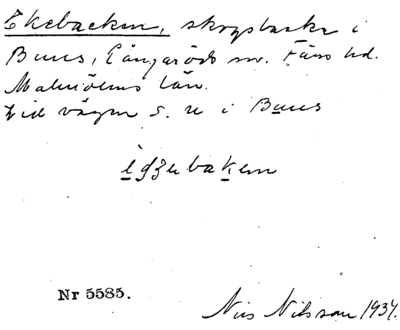 Ekebacken, skogsbacke i
Buus, Långaröds sn. Färs hd.
Malmöhus län.
Vid vägen s. u i Buus
ẹgʒebaḳen
Nr 5585.
Nils Nilsson 1934.